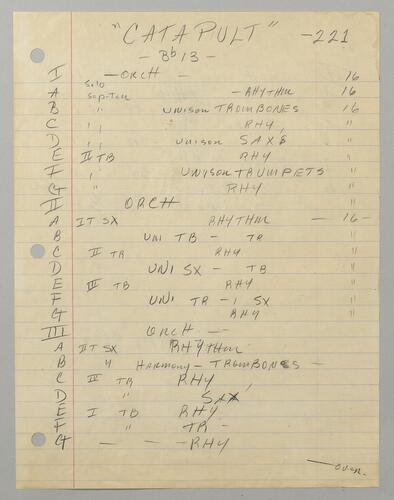 "CATAPULT" -221
- Bb 13 -
I - ORCH - 16
A Solo Sop-Ten - RHYTHM 16
B " UNISON TROMBONES 16
C " RHY, "
D " UNISON SAXS "
E II TB RHY "
F " UNISON TRUMPETS "
G " RHY "
II ORCH
A IT SX RHYTHM - 16 -
B UNI TB - TR "
C II TR RHY "
D UNI SX - TB "
E III TB RHY "
F UNI TR - SX "
G RHY "
III ORCH -
A II T SX RHYTHM
B " HARMONY - TROMBONES -
C III TR RHY
D " SAX
E I TB RHY
F " TR -
G - - - RHY
- OVER.